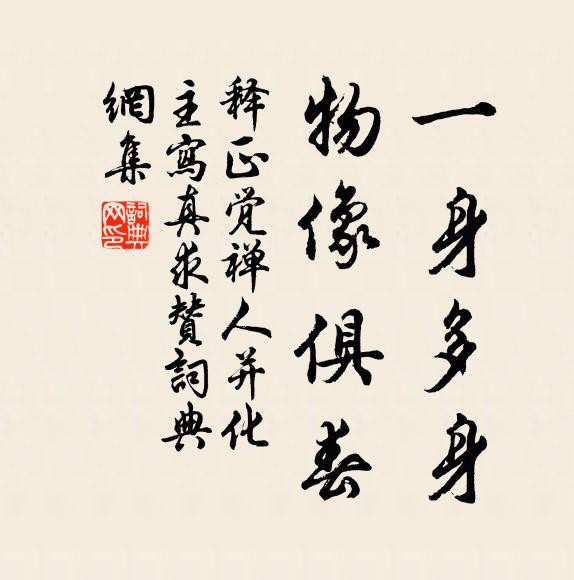 一身多身
物像俱春
释正觉禅人并化
主寫真求贊詞典
網集
詞典
网印